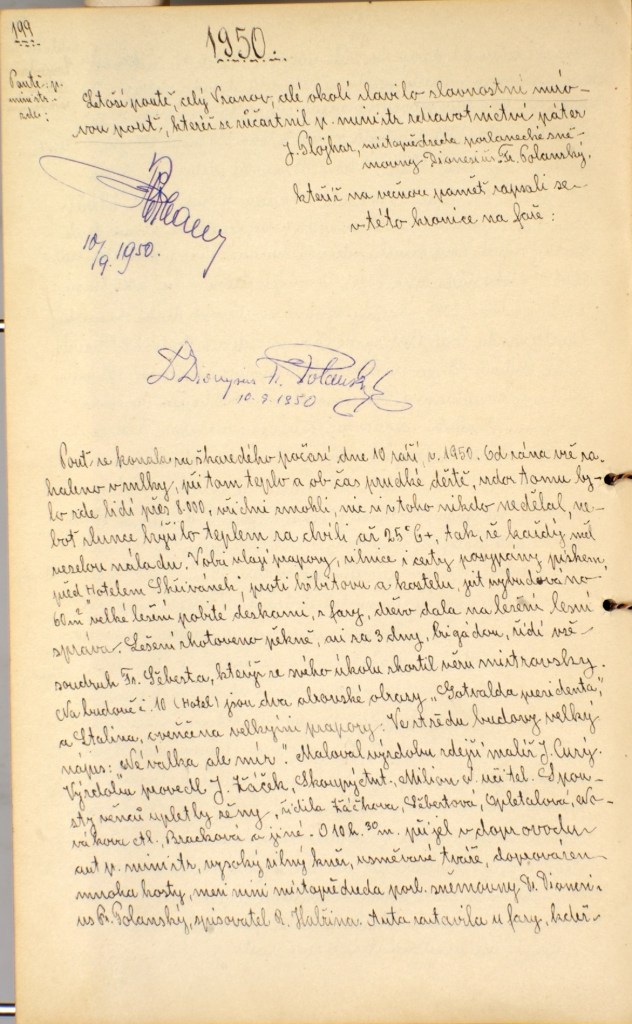 199
1950.
Pouť p.
ministr
zdr.:
Letoší poutě, celý Vranov, alé okolí slavilo slavnostní míro-
vou pouť, kteréž se zúčastnil p. ministr zdravotnictví páter
J. Plojhar, místopředseda poslanecké sně-
movny Dionesius Fr. Polanský,
kteříž na věčnou paměť zapsali se
v této kronice na faře:
10/9. 1950.
D Dionysius Fr. Polanský
10.9.1950
Pouť se konala za škaredého počasí dne 10 září, r. 1950. Od rána vše za-
haleno v mlhy, při tom teplo a ob čas prudké deště, vzdor tomu by-
lo zde lidí přes 8.000, všichni zmokli, nic si z toho nikdo nedělal, ne-
boť slunce hýřilo teplem za chvíli až 25°C+, tak, že každý měl
veselou náladu. V obci vlají prapory, silnice i cesty posypány pískem,
před Hotelem Skřivánek, proti hřbitovu a kostelu, jest vybudováno
60 m² velké lešení pobité deskami, z fary, dřevo dala na lešení lesní
správa. Lešení zhotoveno pěkně, asi za 3 dny, brigádou, řídí vše
soudruh Fr. Šebesta, kterýž se svého úkolu zhostil věru mistrovsky.
Na budově č. 10 (Hotel) jsou dva obrovské obrazy „Gotvalda presidenta,"
a Stalina, ověnčena velkými prapory: Ve středu budovy velký
nápis: „Né válka ale mír". Maloval výzdobu zdejší malíř J. Curý.
Výzdobu provedl J. Žáček, Skoupý Ant., Milian a učitel. Spou-
sty věnců upletly ženy, řídila Žáčkova, Šebertová, Opletalová, No-
vákova ctl., Brackova a jiné. O 10 h. 30 m. přijel v doprovodu
aut p. ministr, vysoký silný kněz, usměvavé tváře, doprovázen
mnoha hosty, mezi nimi místopředseda posl. sněmovny D. Dionesi-
us Fr. Polanský, spisovatel R. Habřina. Auta zastavila u fary, kdež